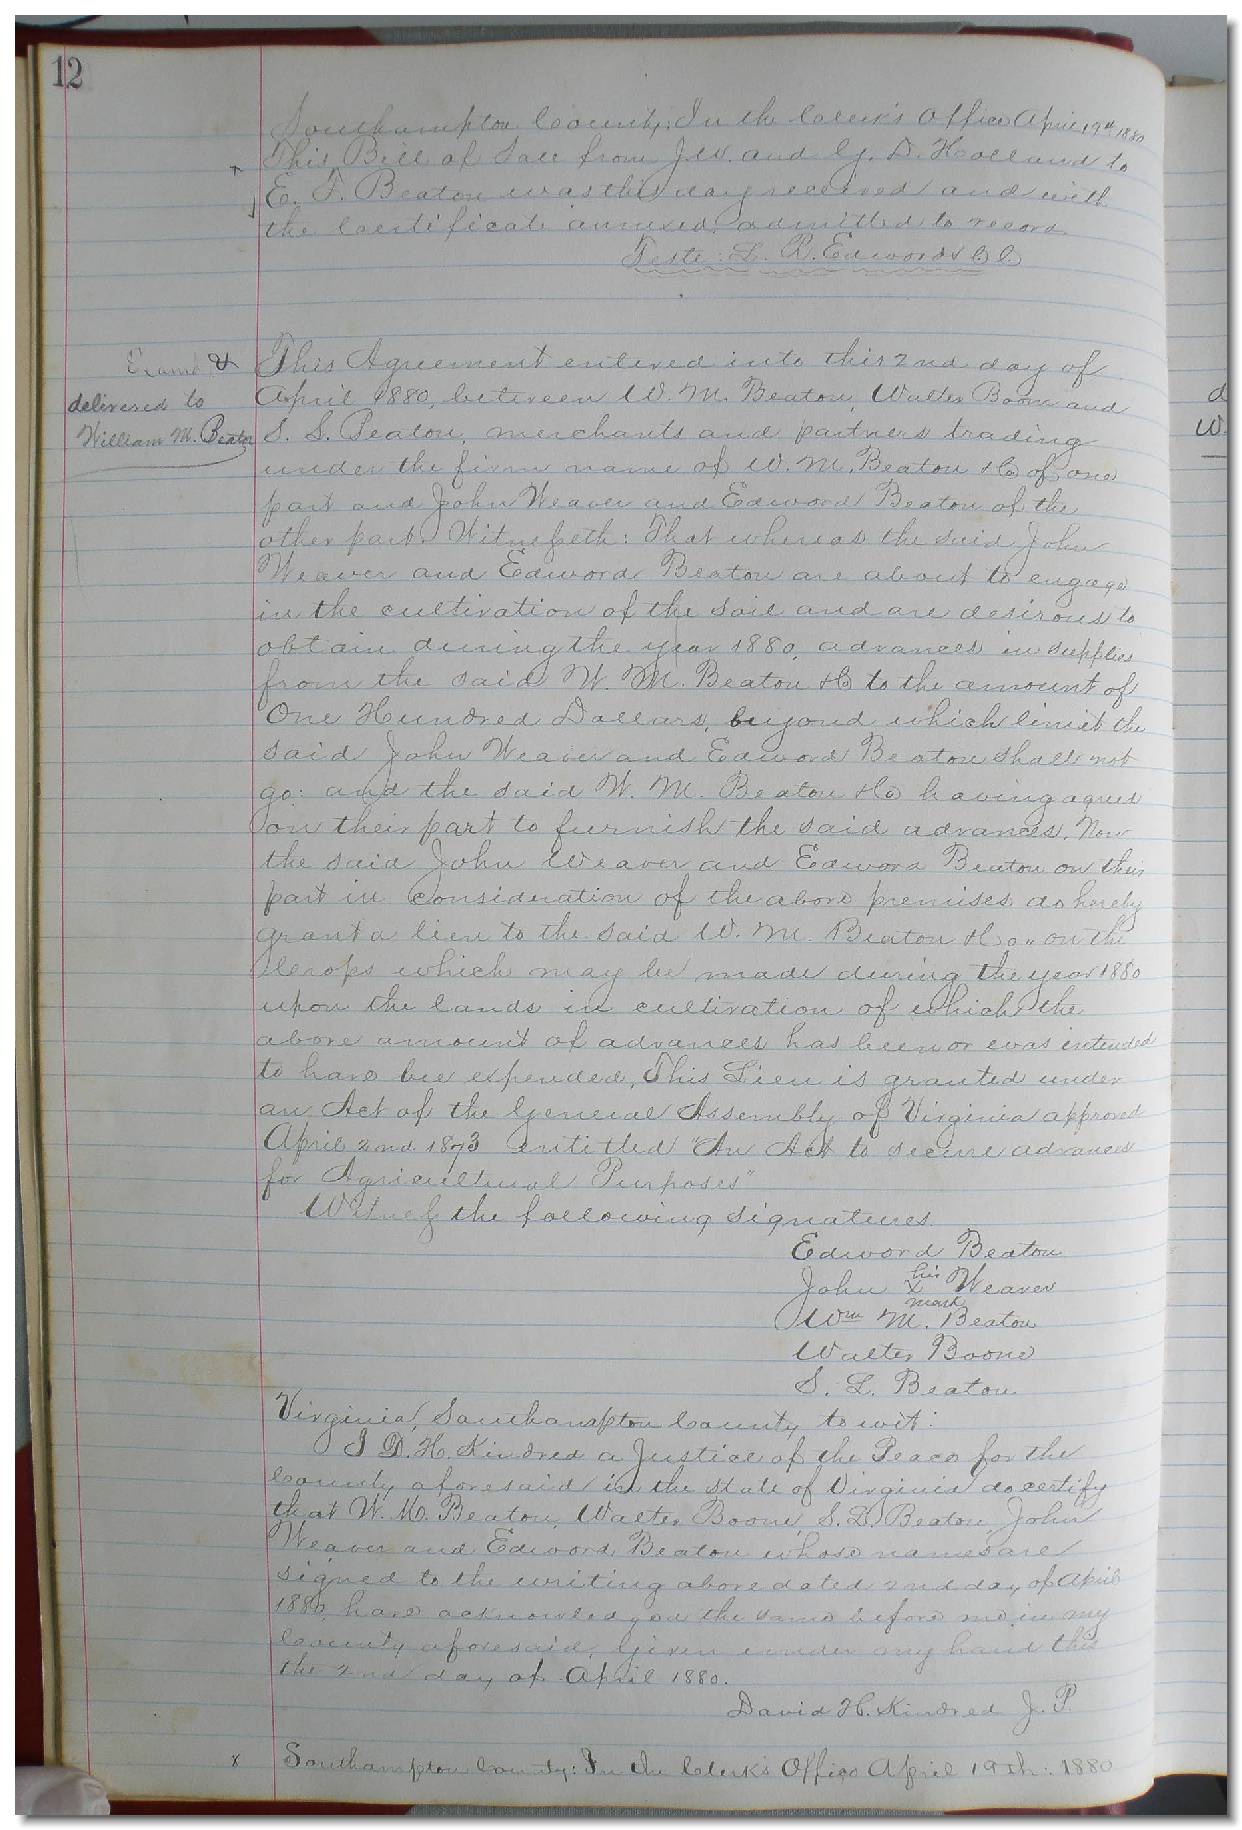 12
Southampton County: In the Clerk's Office April 19th 1880
This Bill of Sale from J.W. and G. D. Holland to
E. T. Beaton was this day received and with
the Certificate annexed admitted to record
Teste: L. R. Edwards C C
Examd &
delivered to
William M. Beaton
This Agreement entered into this 2nd day of
April 1880, between W. M. Beaton, Walter Boone and
S. L. Beaton, merchants and partners trading
under the firm name of W. M. Beaton & Co of one
part and John Weaver and Edword Beaton of the
other part. Witnesseth: That whereas the said John
Weaver and Edword Beaton are about to engage
in the cultivation of the soil and are desirous to
obtain during the year 1880, advances in supplies
from the said W. M. Beaton & Co to the amount of
One Hundred Dollars, beyond which limit the
said John Weaver and Edword Beaton shall not
go: and the said W. M. Beaton & Co having agreed
on their part to furnish the said advances. Now
the said John Weaver and Edword Beaton on their
part in consideration of the above premises do hereby
grant a lien to the said W. M. Beaton & Co., on the
Crops which may be made during the year 1880
upon the lands in cultivation of which the
above amount of advances has been or was intended
to have be expended. This Lien is granted under
an Act of the General Assembly of Virginia approved
April 2nd 1873 entitled "An Act to secure advances
for Agricultural Purposes"
Witness the following signatures.
Edword Beaton
his
John X Weaver
mark
Wm M. Beaton
Walter Boone
S. L. Beaton
Virginia, Southampton County to wit:
I D. H. Kindred a Justice of the Peace for the
County aforesaid in the State of Virginia do certify
that W. M. Beaton, Walter Boone, S. L. Beaton, John
Weaver and Edword Beaton whose names are
signed to the writing above dated 2nd day of April
1880, have acknowledged the same before me in my
County aforesaid. Given under my hand this
the 2nd day of April 1880.
David H. Kindred J. P.
x Southampton County: In the Clerk's Office April 19th: 1880
d
W.